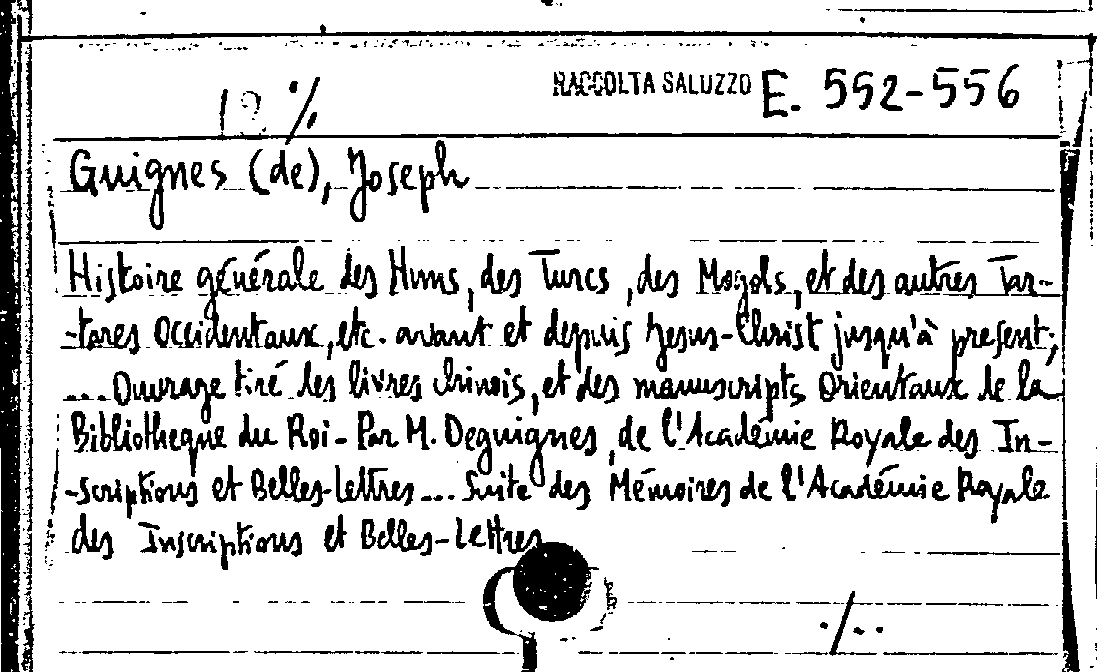 RACCOLTA SALUZZO E. 552-556
12 ·/.
Guignes (de), Joseph
Histoire générale des Huns, des Turcs, des Mogols, et des autres Tar-
-tares Occidentaux, etc. avant et depuis Jesus-Christ jusqu'à present;
... Ouvrage tiré des livres chinois, et des manuscripts Orientaux de la
Bibliotheque du Roi - Par M. Deguignes, de l'Académie Royale des In-
-scriptions et Belles-Lettres... Suite des Mémoires de l'Académie Royale
des Inscriptions et Belles-Lettres
·/..